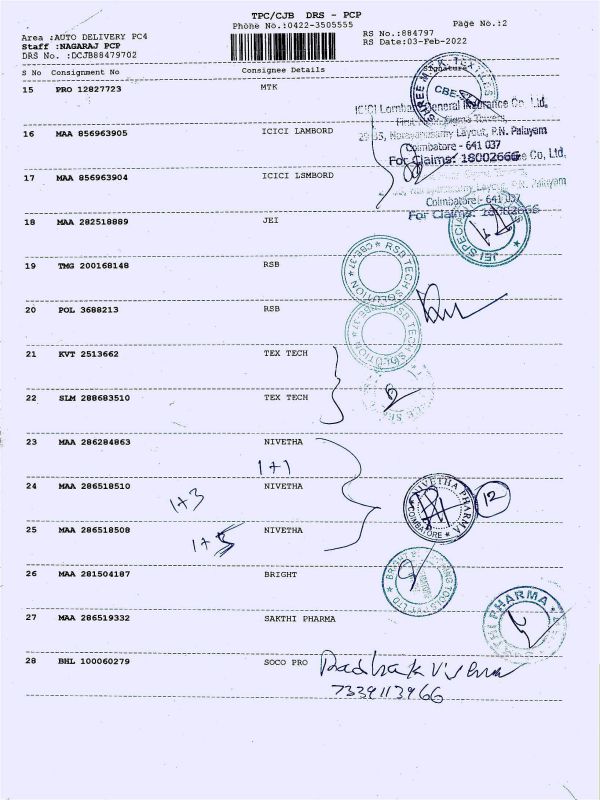 TPC/CJB DRS - PCP
Phone No.:0422-3505555 Page No.:2
Area :AUTO DELIVERY PC4 RS No.:884797
Staff :NAGARAJ PCP RS Date:03-Feb-2022
DRS No. :DCJB88479702
S No Consignment No Consignee Details Signature
15 PRO 12827723 MTK
SHREE M.T.K. TEXTILES
CBE
ICICI Lombard General Insurance Co. Ltd,
29-35, Narayanasamy Layout, P.N. Palayam
Coimbatore - 641 037
For Claims: 18002666
16 MAA 856963905 ICICI LAMBORD
17 MAA 856963904 ICICI LSMBORD
Co, Ltd,
Layout, P.N. Palayam
Coimbatore - 641 037
For Claims: 18002666
18 MAA 282518889 JEI
JEI SPECIAL
19 TMG 200168148 RSB
RSB TECH SOLUTION CBE-37
20 POL 3688213 RSB
RSB TECH SOLUTION CBE-37
21 KVT 2513662 TEX TECH
22 SLM 288683510 TEX TECH
23 MAA 286284863 NIVETHA
1+1
24 MAA 286518510 NIVETHA
1+3
NIVETHA PHARMA COIMBATORE
12
25 MAA 286518508 NIVETHA
1+5
26 MAA 281504187 BRIGHT
BRIGHT
TOOLS PVT LTD
27 MAA 286519332 SAKTHI PHARMA
SAKTHI PHARMA
28 BHL 100060279 SOCO PRO
7339113966